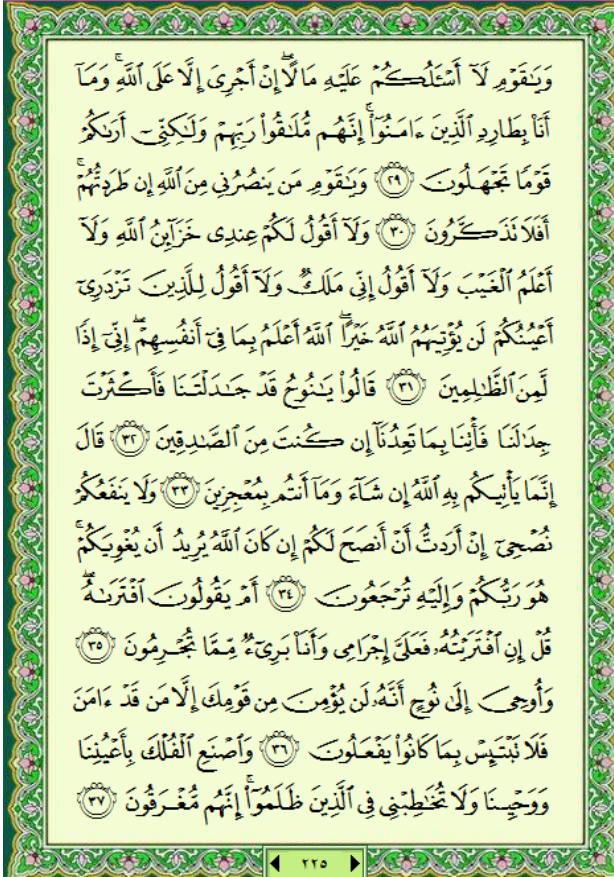 وَيَٰقَوْمِ لَآ أَسْـَٔلُكُمْ عَلَيْهِ مَالًا ۖ إِنْ أَجْرِىَ إِلَّا عَلَى ٱللَّهِ ۚ وَمَآ
أَنَا۠ بِطَارِدِ ٱلَّذِينَ ءَامَنُوٓا۟ ۚ إِنَّهُم مُّلَٰقُوا۟ رَبِّهِمْ وَلَٰكِنِّىٓ أَرَىٰكُمْ
قَوْمًا تَجْهَلُونَ ﴿٢٩﴾ وَيَٰقَوْمِ مَن يَنصُرُنِى مِنَ ٱللَّهِ إِن طَرَدتُّهُمْ ۚ
أَفَلَا تَذَكَّرُونَ ﴿٣٠﴾ وَلَآ أَقُولُ لَكُمْ عِندِى خَزَآئِنُ ٱللَّهِ وَلَآ
أَعْلَمُ ٱلْغَيْبَ وَلَآ أَقُولُ إِنِّى مَلَكٌ وَلَآ أَقُولُ لِلَّذِينَ تَزْدَرِىٓ
أَعْيُنُكُمْ لَن يُؤْتِيَهُمُ ٱللَّهُ خَيْرًا ۖ ٱللَّهُ أَعْلَمُ بِمَا فِىٓ أَنفُسِهِمْ ۖ إِنِّىٓ إِذًا
لَّمِنَ ٱلظَّٰلِمِينَ ﴿٣١﴾ قَالُوا۟ يَٰنُوحُ قَدْ جَٰدَلْتَنَا فَأَكْثَرْتَ
جِدَٰلَنَا فَأْتِنَا بِمَا تَعِدُنَآ إِن كُنتَ مِنَ ٱلصَّٰدِقِينَ ﴿٣٢﴾ قَالَ
إِنَّمَا يَأْتِيكُم بِهِ ٱللَّهُ إِن شَآءَ وَمَآ أَنتُم بِمُعْجِزِينَ ﴿٣٣﴾ وَلَا يَنفَعُكُمْ
نُصْحِىٓ إِنْ أَرَدتُّ أَنْ أَنصَحَ لَكُمْ إِن كَانَ ٱللَّهُ يُرِيدُ أَن يُغْوِيَكُمْ ۚ
هُوَ رَبُّكُمْ وَإِلَيْهِ تُرْجَعُونَ ﴿٣٤﴾ أَمْ يَقُولُونَ ٱفْتَرَىٰهُ ۖ
قُلْ إِنِ ٱفْتَرَيْتُهُۥ فَعَلَىَّ إِجْرَامِى وَأَنَا۠ بَرِىٓءٌ مِّمَّا تُجْرِمُونَ ﴿٣٥﴾
وَأُوحِىَ إِلَىٰ نُوحٍ أَنَّهُۥ لَن يُؤْمِنَ مِن قَوْمِكَ إِلَّا مَن قَدْ ءَامَنَ
فَلَا تَبْتَئِسْ بِمَا كَانُوا۟ يَفْعَلُونَ ﴿٣٦﴾ وَٱصْنَعِ ٱلْفُلْكَ بِأَعْيُنِنَا
وَوَحْيِنَا وَلَا تُخَٰطِبْنِى فِى ٱلَّذِينَ ظَلَمُوٓا۟ ۚ إِنَّهُم مُّغْرَقُونَ ﴿٣٧﴾
٢٢٥